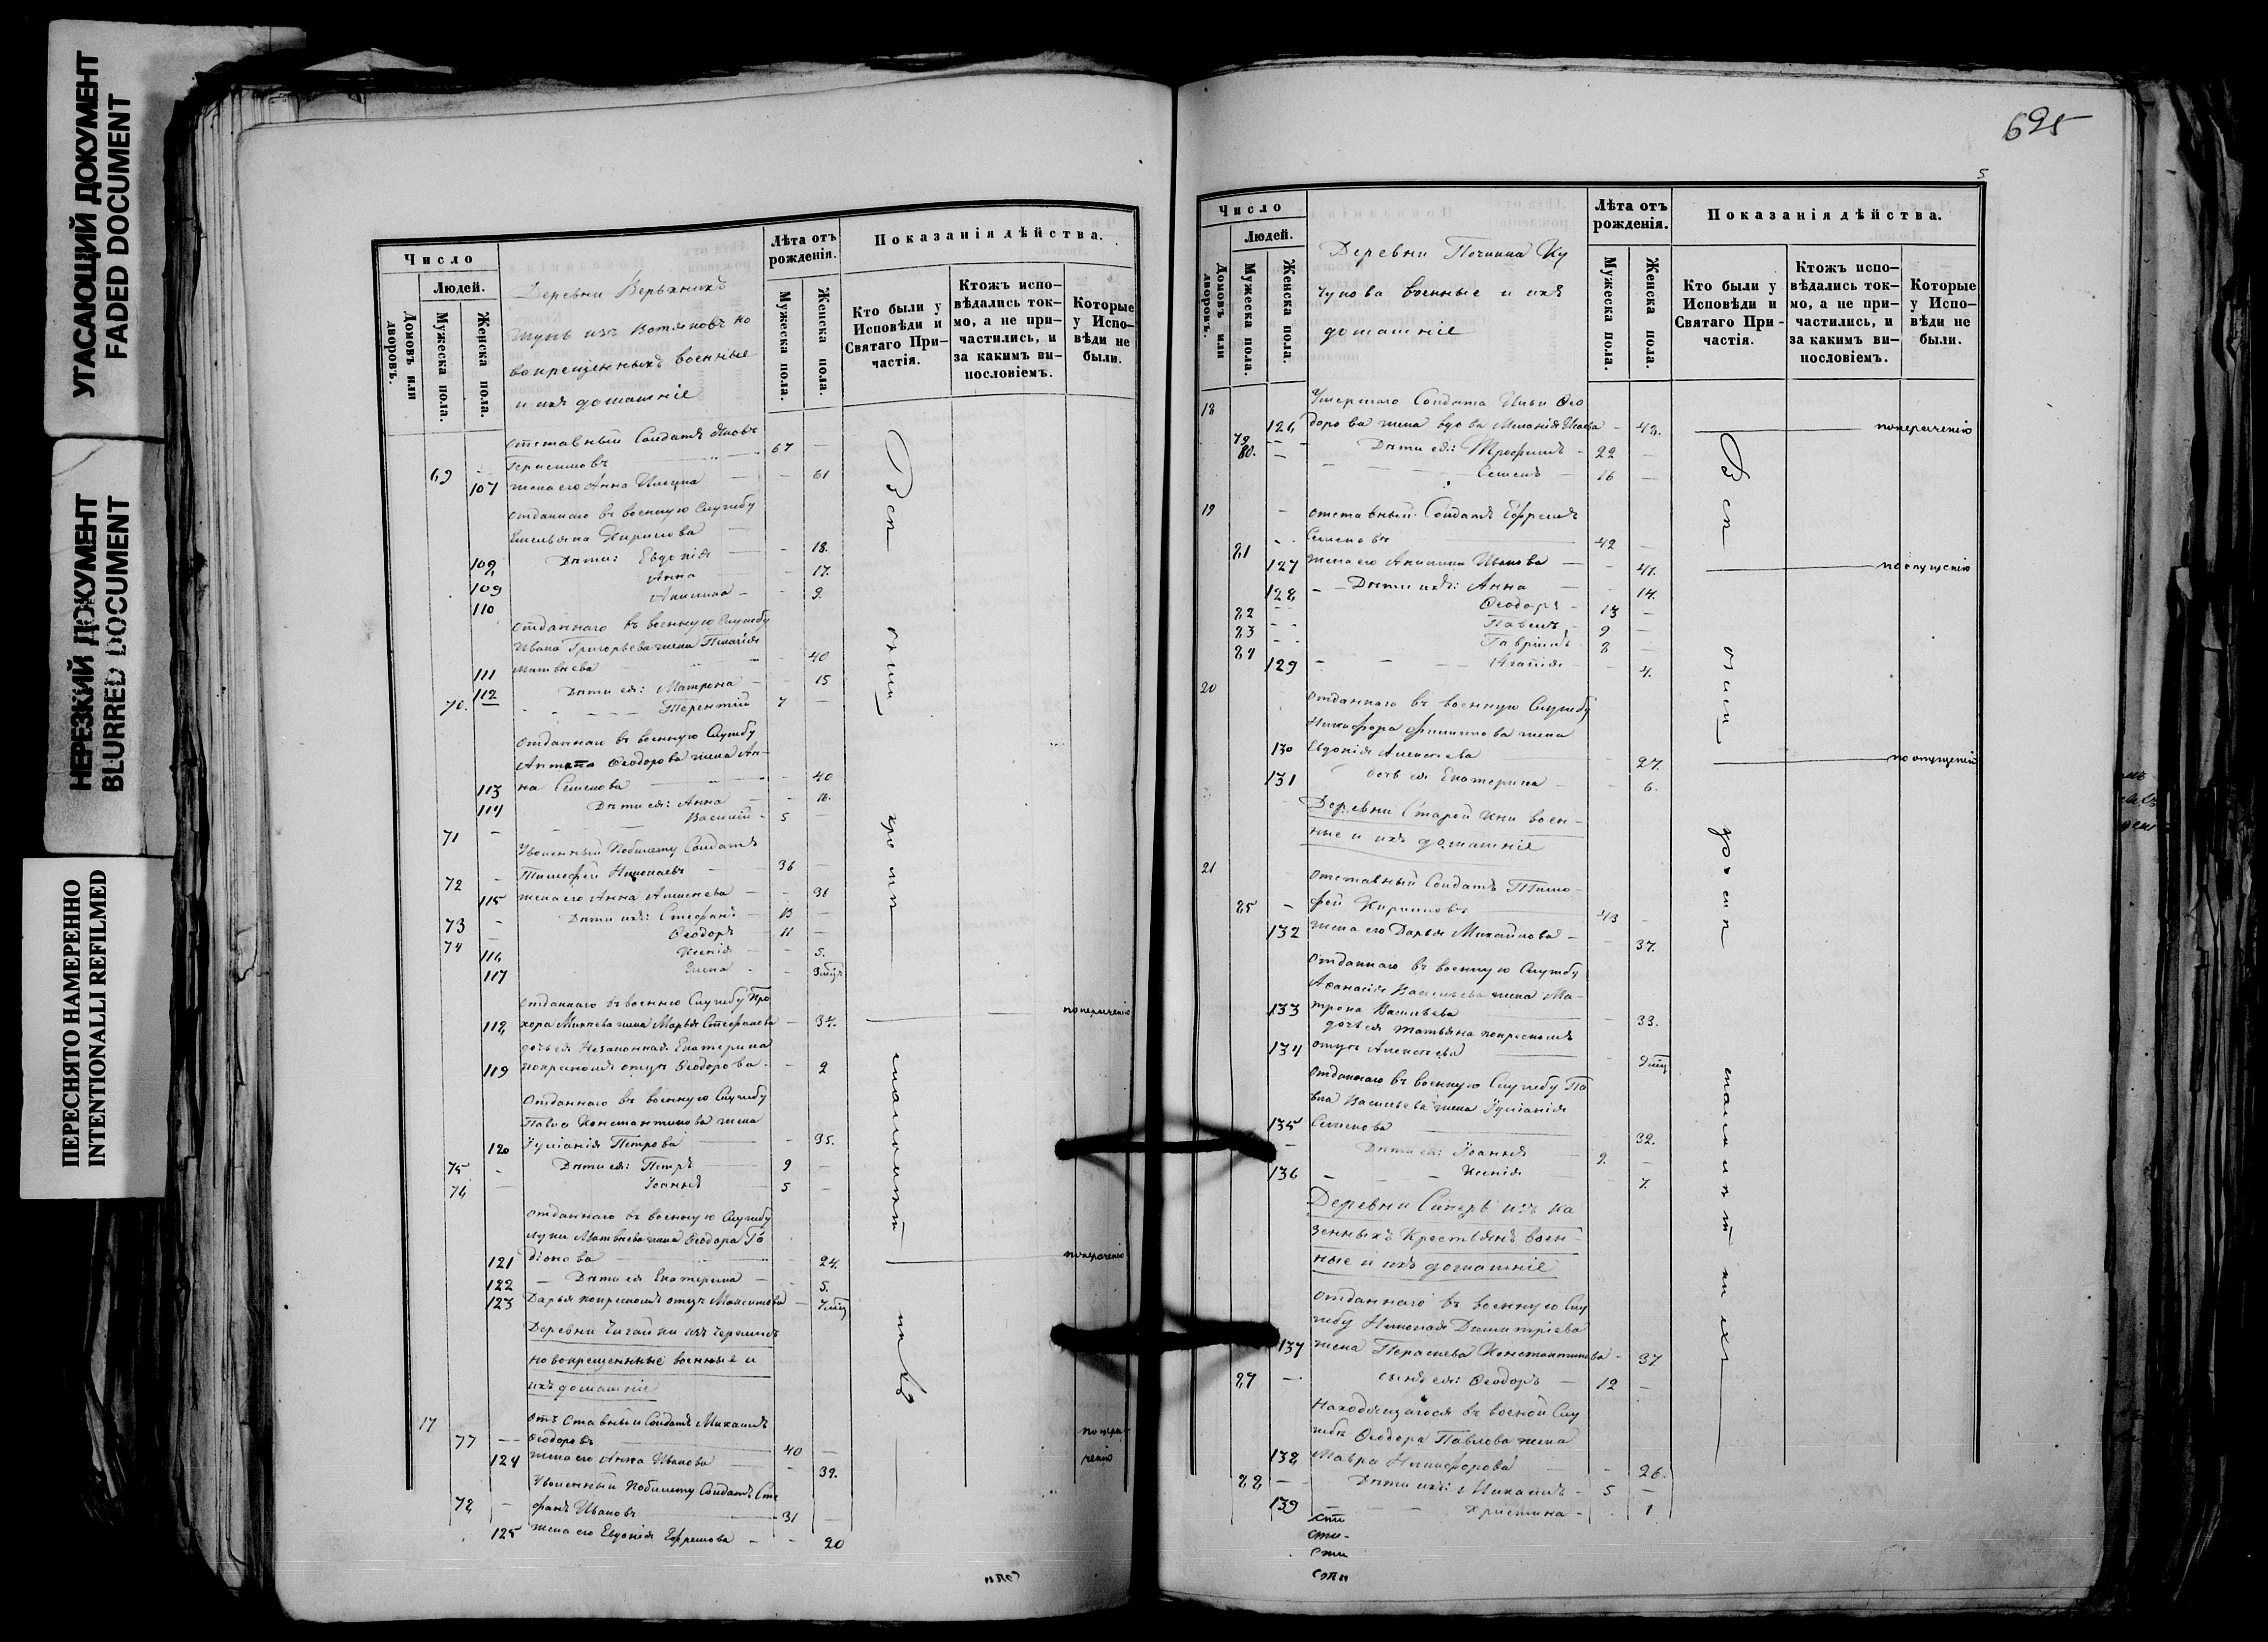 УГАСАЮЩИЙ ДОКУМЕНТ
FADED DOCUMENT
НЕРЕЗКИЙ ДОКУМЕНТ
BLURRED DOCUMENT
ПЕРЕСНЯТО НАМЕРЕННО
INTENTIONALLI REFILMED
Число
Людей.
Домовъ или дворовъ.
Мужеска пола.
Женска пола.
Деревни Верьхнихъ
Шунь изъ Вотяковъ но
вокрещенныхъ военные
и ихъ домашніе
Лѣта отъ рожденія.
Мужеска пола.
Женска пола.
Показанія дѣйства.
Кто были у Исповѣди и Святаго Причастія.
Ктожъ исповѣдались токмо, а не причастились, и за какимъ винословіемъ.
Которые у Исповѣди не были.
отставный Солдатъ Яковъ
69 Герасимовъ 67
107 жена его Анна 61
отданнаго въ военную Службу
Емельяна Кирилова
108 Дѣти: Евдокія 18.
109 Анна 17.
110 Акилина 9.
отданнаго въ военную Службу
Ивана Григорьева жена Пелагія
111 Матвѣева 40
112 Дѣти ея: Матрона 15
70. Терентій 7
отданнаго въ военную Службу
Антона Ѳеодорова жена Ан-
113 на Семенова 40
114 Дѣти ея: Анна 16.
71 Василій 5
Уволенный побилету Солдатъ
72 Тимофей Николаевъ 36
115 жена его Анна Алексеева 31
73 Дѣти ихъ: Стефанъ 13
74 Ѳеодоръ 11
116 Ксенія 5.
117 Елена 3 мцъ
отданнаго въ военную Службу Про
118 хора Михеева жена Марья Стефанова 34. понерачению
дочь ея Незаконная Екатерина
119 покрѣсномъ отцу Ѳеодорова 2
Отданнаго въ военную Службу
Павла Константинова жена
120 Іуліанія Петрова 35.
75 Дѣти ея: Петръ 9
76 Іоаннъ 5
отданнаго въ военную Службу
луки Матвѣева жена Ѳеодора Га
121 діонова 24. понерачению
122 Дѣти ея Екатерина 5.
123 Дарья покрѣсномъ отцу Максимова 7 мцъ
Деревни Чигайки изъ черемисъ
новокрещенные военные и
ихъ домашніе
17 отъ Ставный Солдатъ Михаилъ
77 Ѳеодоровъ 40 понера-
124 жена его Анна Иванова 39. чению
Уволенный побилету Солдатъ Сте
78 фанъ Ивановъ 31
125 жена его Евдокія Ефремова 20
Всѣ они кромѣ малолѣт никъ
625
5
Число
Людей.
Домовъ или дворовъ.
Мужеска пола.
Женска пола.
Деревни Починка Ку
чукова военные и ихъ
домашніе
Лѣта отъ рожденія.
Мужеска пола.
Женска пола.
Показанія дѣйства.
Кто были у Исповѣди и Святаго Причастія.
Ктожъ исповѣдались токмо, а не причастились, и за какимъ винословіемъ.
Которые у Исповѣди не были.
18 Умершаго Солдата Ильи Ѳео
126 дорова жена вдова Меланія Исаева 43. понерачению
79 Дѣти ея: Трофимъ 22
80. Семенъ 16
19 отставный Солдатъ Ефремъ
81 Семеновъ 42
127 жена его Акилина Иванова 41. поопущенію
128 Дѣти ихъ: Анна 14.
82 Ѳеодоръ 13
83 Павелъ 9
84 Гавріилъ 8
129 Агапія 4.
20 отданнаго въ военную Службу
Никифора Филиппова жена
130 Евдокія Алексеева 27. поопущенію
131 дочь ея Екатерина 6.
Деревни Старой Ини воен-
ные и ихъ домашніе
21 отставный Солдатъ Тимо-
85 фей Кириловъ 43
132 жена его Дарья Михайлова 37.
отданнаго въ военную Службу
Афанасія Васильева жена Ма-
133 трона Васильева 33.
дочь ея Татьяна покрѣсномъ
134 отцу Алексеева 9 мцъ
отданнаго въ военную Службу Па
вла Васильева жена Іуліанія
135 Семенова 32.
Дѣти ея: Іоаннъ 9.
136 Ксенія 7.
Деревни Сиперь изъ ка
зенныхъ Крестьянъ воен-
ные и ихъ домашніе
отданнаго въ военную Слу
жбу Николая Димитріева
137 жена Параскева Константинова 37.
87 сынъ ея: Ѳеодоръ 12
находящагося въ военой Слу
жбѣ Ѳеодора Павлова жена
138 Мавра Никифорова 26.
88 Дѣти ихъ: Михаилъ 5
139 Христина 1
Всѣ они кромѣ малолѣт нихъ